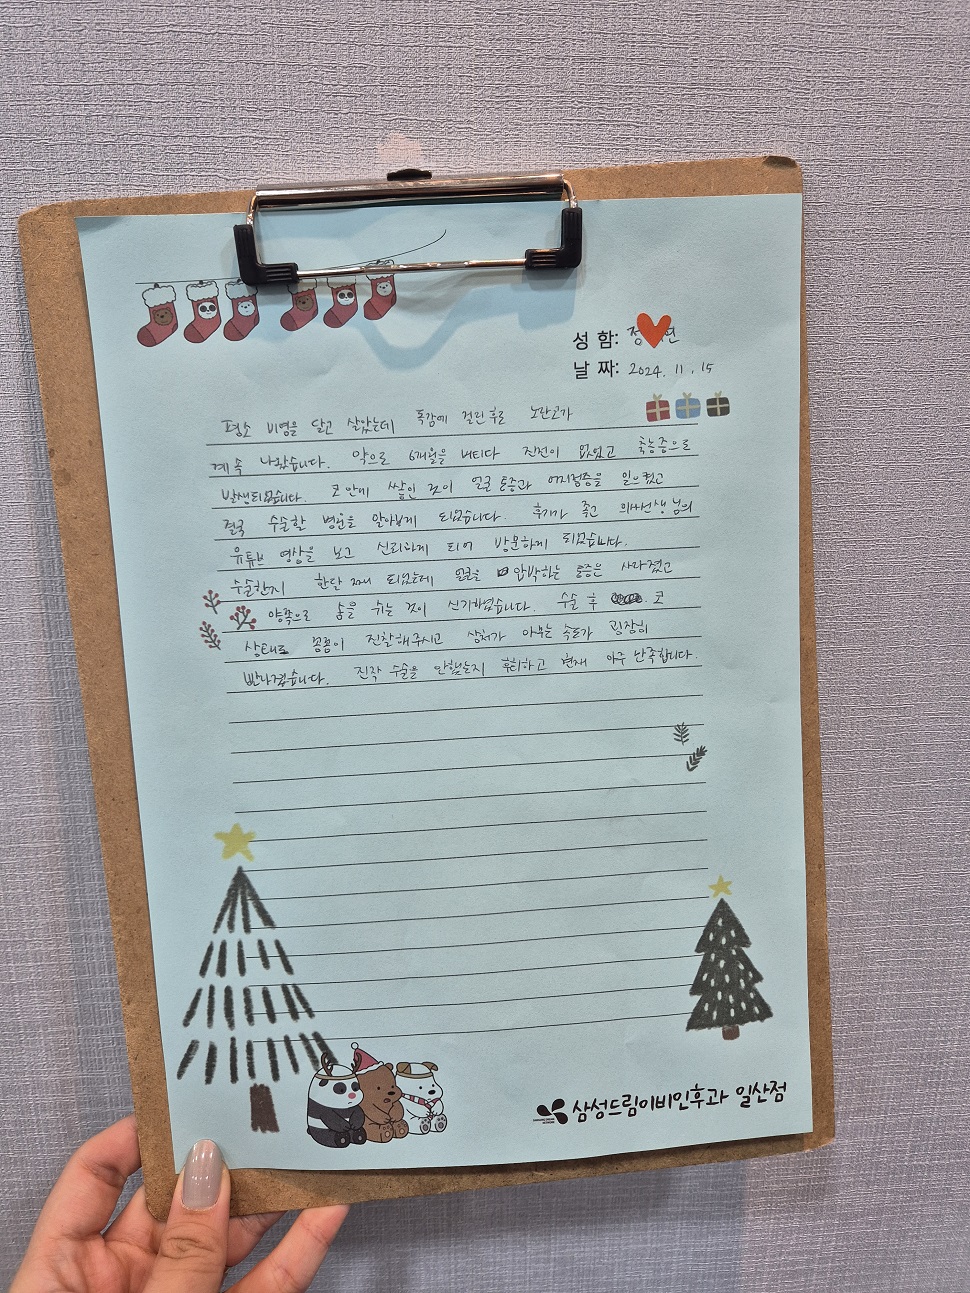 성 함: 정 연
날 짜: 2024. 11. 15
평소 비염을 달고 살았는데 독감에 걸린 후로 노란코가
계속 나왔습니다. 약으로 6개월을 버티다 진전이 없었고 축농증으로
발생되었습니다. 코 안에 쌓인 것이 얼굴 통증과 어지럼증을 일으켰고
결국 수술할 병원을 알아보게 되었습니다. 후기가 좋고 의사선생님의
유튜브 영상을 보고 신뢰하게 되어 방문하게 되었습니다.
수술한지 한달 째 되었는데 얼굴을 압박하는 통증은 사라졌고
양쪽으로 숨을 쉬는 것이 신기하였습니다. 수술 후 코
상태로 꼼꼼이 진찰해주시고 상처가 아무는 속도가 굉장히
빨라졌습니다. 진작 수술을 안했는지 후회하고 현재 아주 만족합니다.
삼성드림이비인후과 일산점